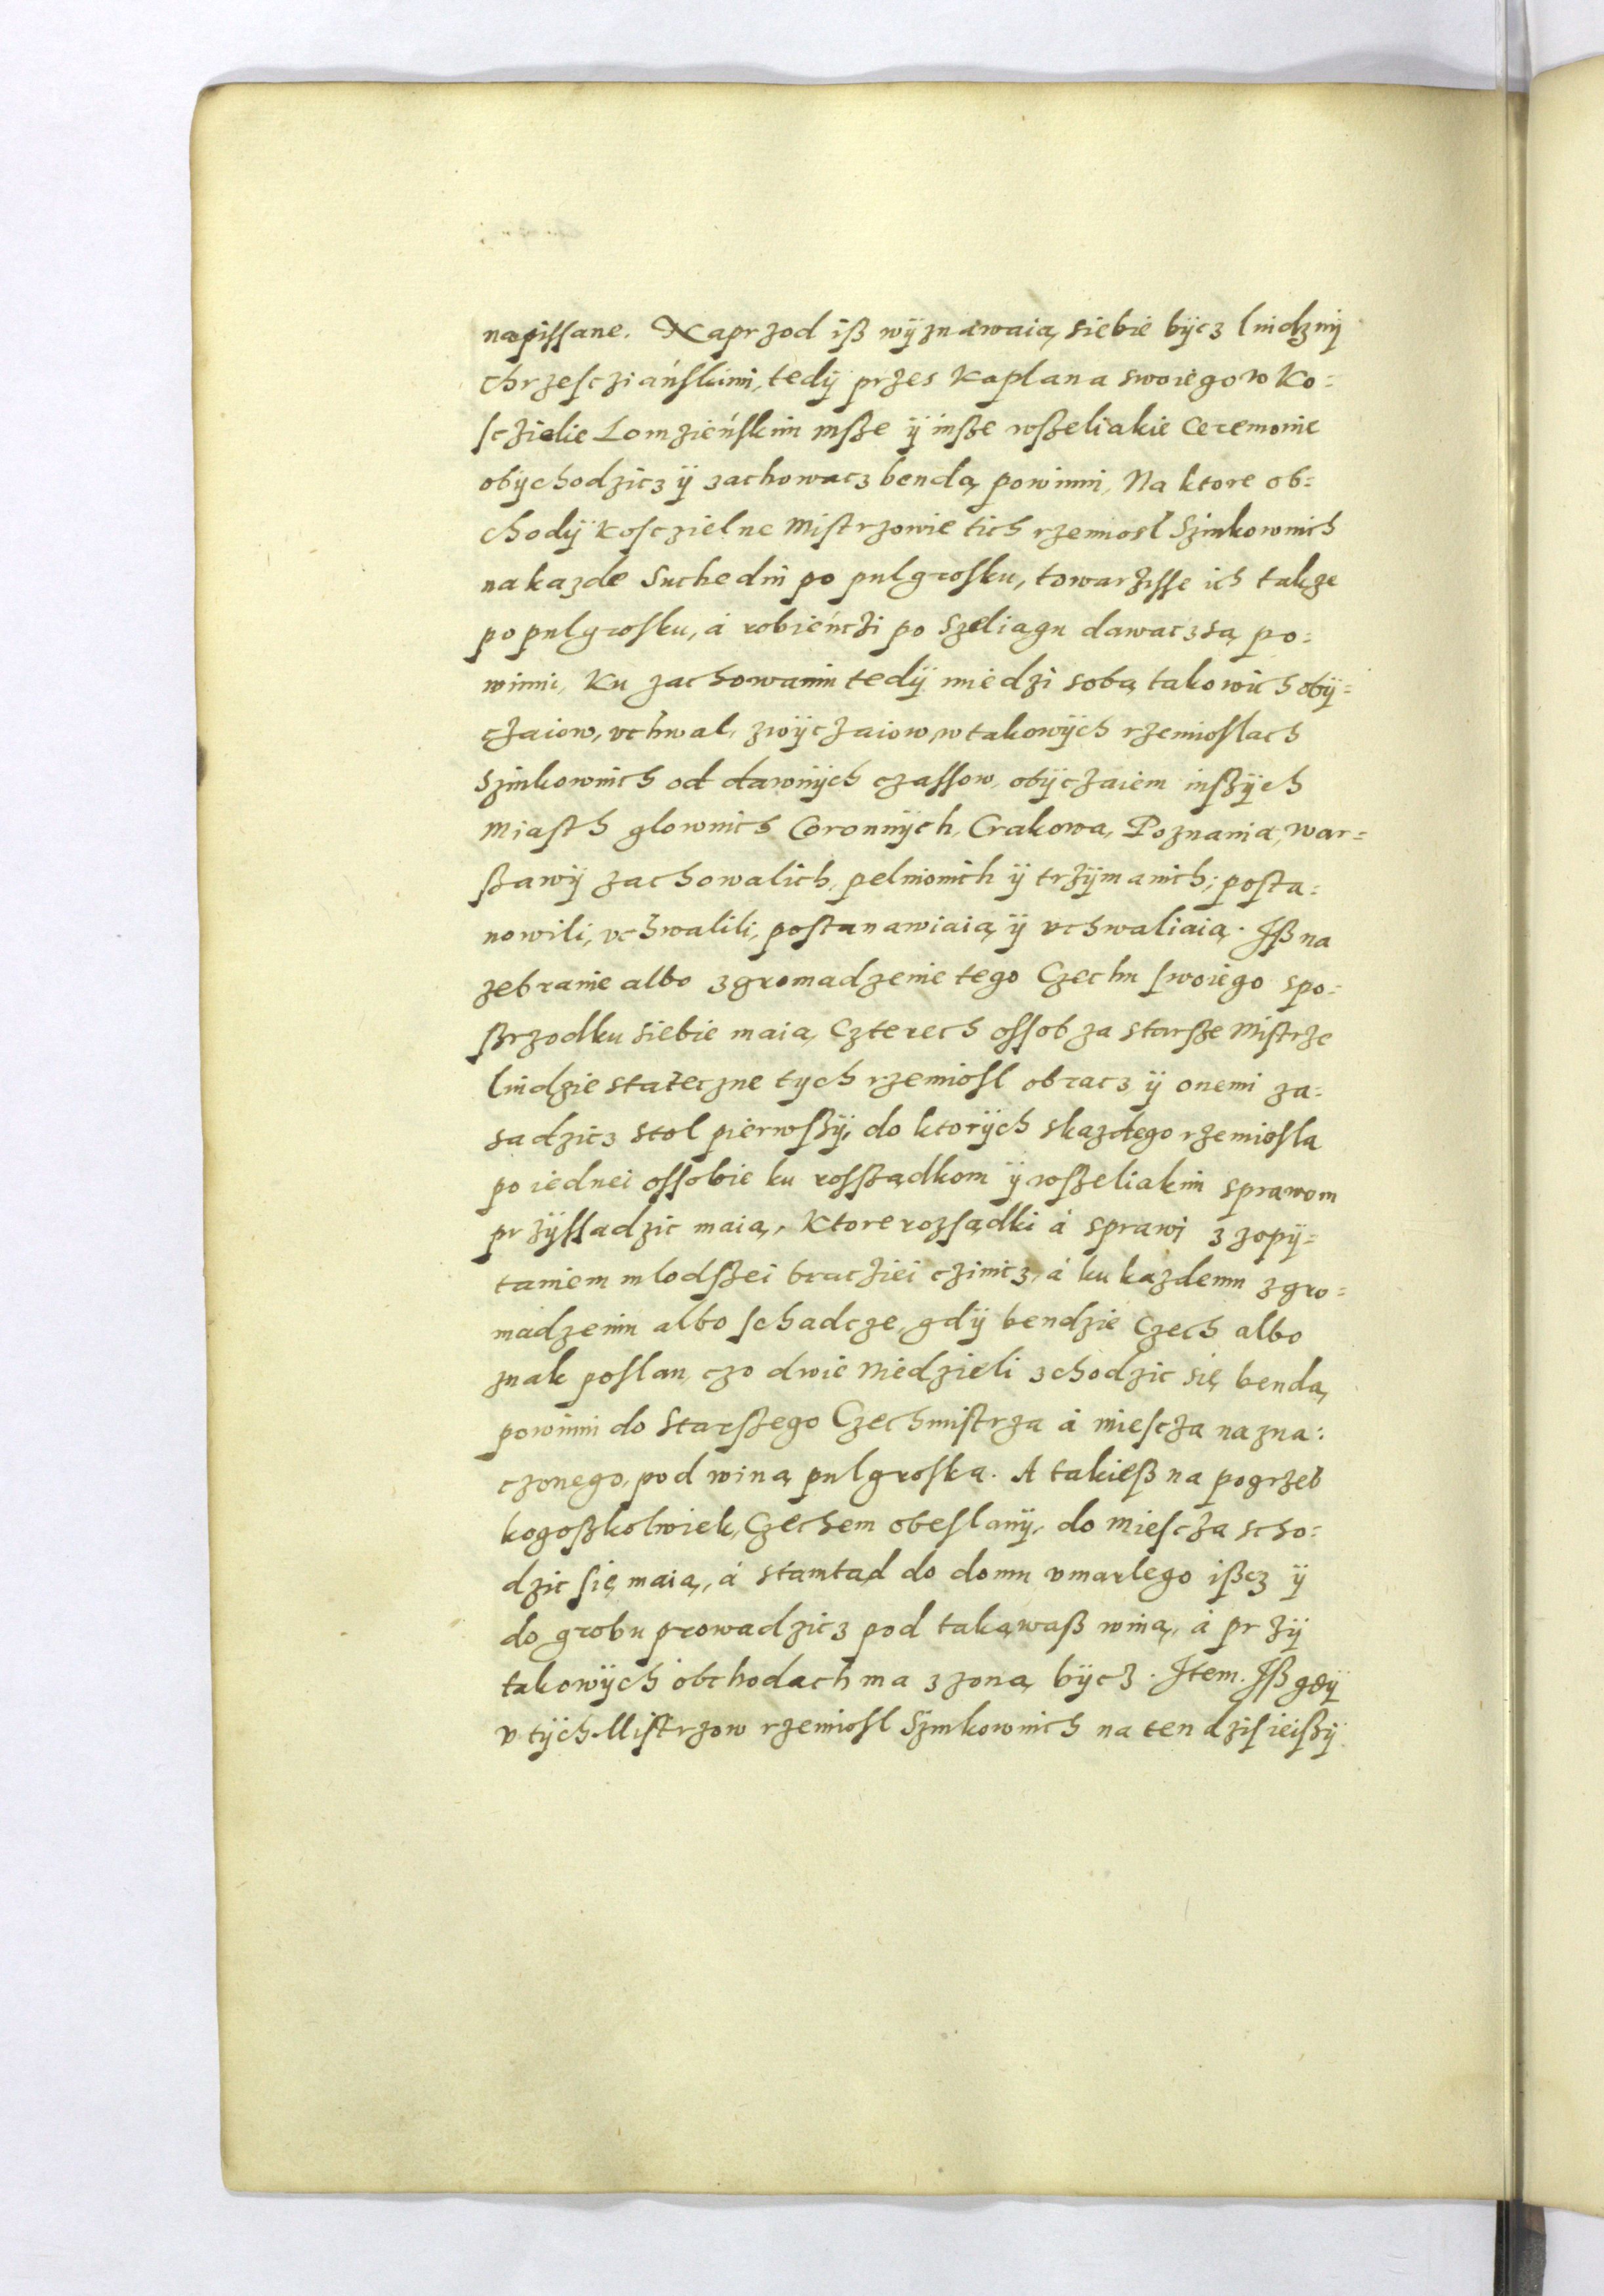 napiſſane. Naprzod iß wÿznawaią siebie bÿcz liudzmÿ
chrzeſcziańſkimi, tedÿ przes Kaplana swoiego w Ko=
ſczielie Lomzieńſkim mſze ÿ inße wßeliakie Ceremonie
obÿchodzicz ÿ zachowacz bendą powinni, Na ktore ob=
chodÿ Koſczielne Miſtrzowie tich rzemiosł Szinkownich
na kazde Suchedni po pulgroſku, towarziſſe ich takze
po pulgroſku, á robieńczi po Szeliągu dawacz są po=
winni, Ku zachowaniu tedÿ miedzi sobą takowich obÿ=
czaiow, vchwal, zwÿczaiow, w takowÿch rzemioſlach
Szinkownich od dawnÿch czaſſow, obÿczaiem inßÿch
Miaſth glownich Coronnÿch, Crakowa, Poznania, War=
ßawÿ zachowalich, pelnionich ÿ trzÿmanich; poſta=
nowili, vchwalili, poſtanawiaią ÿ vchwaliaią. Iß na
zebranie albo zgromadzenie tego Czechu ſwoiego spo=
ßrzodku siebie maią, Czterech oſſob za starße Miſtrze
liudzie stateczne tych rzemioſl obracz ÿ onemi za=
sadzicz stol pierwßÿ, do ktorÿch skazdego rzemioſla
po iednei oſſobie ku roſſßądkom ÿ wßeliakim sprawom
przÿſſadzic maią, Ktore rozſądki á sprawi z zopÿ=
taniem mlodßei bracziei czinicz, á ku kazdemu zgro=
madzeniu albo ſchadcze, gdÿ bendzie Czech albo
znak poſlan, czo dwie Niedzieli zchodzic się bendą
powinni do Starßego Czechmiſtrza á mieſcza nazna=
czonego, pod winą pulgroſka. A takieß na pogrzeb
kogoßkolwiek, Czechem obeſlanÿ, do Mieſcza scho=
dzic ſię maią, á stamtąd do domu vmarlego ißcz ÿ
do grobu prowadzicz pod takąwaß winą, á przÿ
takowÿch obchodach ma z zoną bÿcz. Item. Iß gdÿ
v tÿch Miſtrzow rzemioſl Szinkownich na ten dziſieißÿ